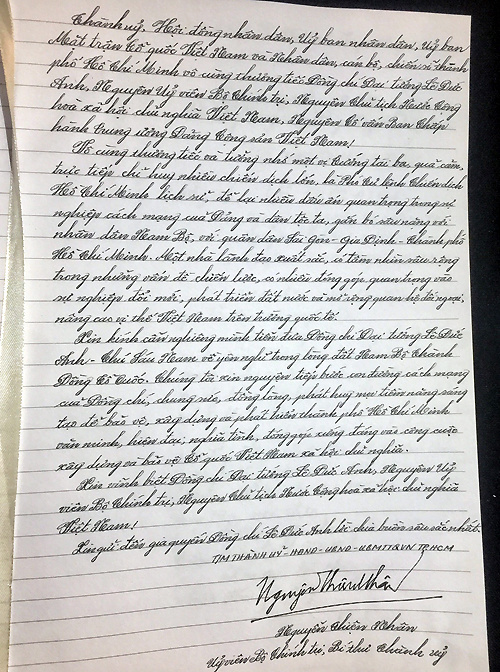 Thành uỷ, Hội đồng nhân dân, Uỷ ban nhân dân, Uỷ ban
Mặt trận Tổ quốc Việt Nam và Nhân dân, cán bộ, chiến sĩ thành
phố Hồ Chí Minh vô cùng thương tiếc Đồng chí Đại tướng Lê Đức
Anh, Nguyên Uỷ viên Bộ Chính trị, Nguyên Chủ tịch Nước Cộng
hoà xã hội chủ nghĩa Việt Nam, Nguyên Cố vấn Ban Chấp
hành Trung ương Đảng Cộng sản Việt Nam!
Vô cùng thương tiếc và tưởng nhớ một vị tướng tài ba, quả cảm,
trực tiếp chỉ huy nhiều chiến dịch lớn, là Phó Tư lệnh Chiến dịch
Hồ Chí Minh lịch sử, để lại nhiều dấu ấn quan trọng trong sự
nghiệp cách mạng của Đảng và dân tộc ta, gắn bó sâu nặng với
nhân dân Nam Bộ, với quân dân Sài Gòn - Gia Định - Thành phố
Hồ Chí Minh. Một nhà lãnh đạo xuất sắc, có tầm nhìn sâu rộng
trong những vấn đề chiến lược, có nhiều đóng góp quan trọng vào
sự nghiệp đổi mới, phát triển đất nước và mở rộng quan hệ đối ngoại,
nâng cao vị thế Việt Nam trên trường quốc tế!
Xin kính cẩn nghiêng mình tiễn đưa Đồng chí Đại tướng Lê Đức
Anh - Chú Sáu Nam về yên nghỉ trong lòng đất Nam Bộ Thành
Đồng Tổ Quốc. Chúng tôi xin nguyện tiếp bước con đường cách mạng
của Đồng chí, chung sức, đồng lòng, phát huy mọi tiềm năng sáng
tạo để bảo vệ, xây dựng và phát triển thành phố Hồ Chí Minh
văn minh, hiện đại, nghĩa tình, đóng góp xứng đáng vào công cuộc
xây dựng và bảo vệ Tổ quốc Việt Nam xã hội chủ nghĩa.
Xin vĩnh biệt Đồng chí Đại tướng Lê Đức Anh, Nguyên Uỷ
viên Bộ Chính trị, Nguyên Chủ tịch Nước Cộng hoà xã hội chủ nghĩa
Việt Nam!
Xin gửi đến gia quyến Đồng chí Lê Đức Anh lời chia buồn sâu sắc nhất.
T/M THÀNH UỶ - HĐND - UBND - UBMTTQVN TP HCM
Nguyễn Thiện Nhân
Nguyễn Thiện Nhân
Uỷ viên Bộ Chính trị, Bí thư Thành uỷ